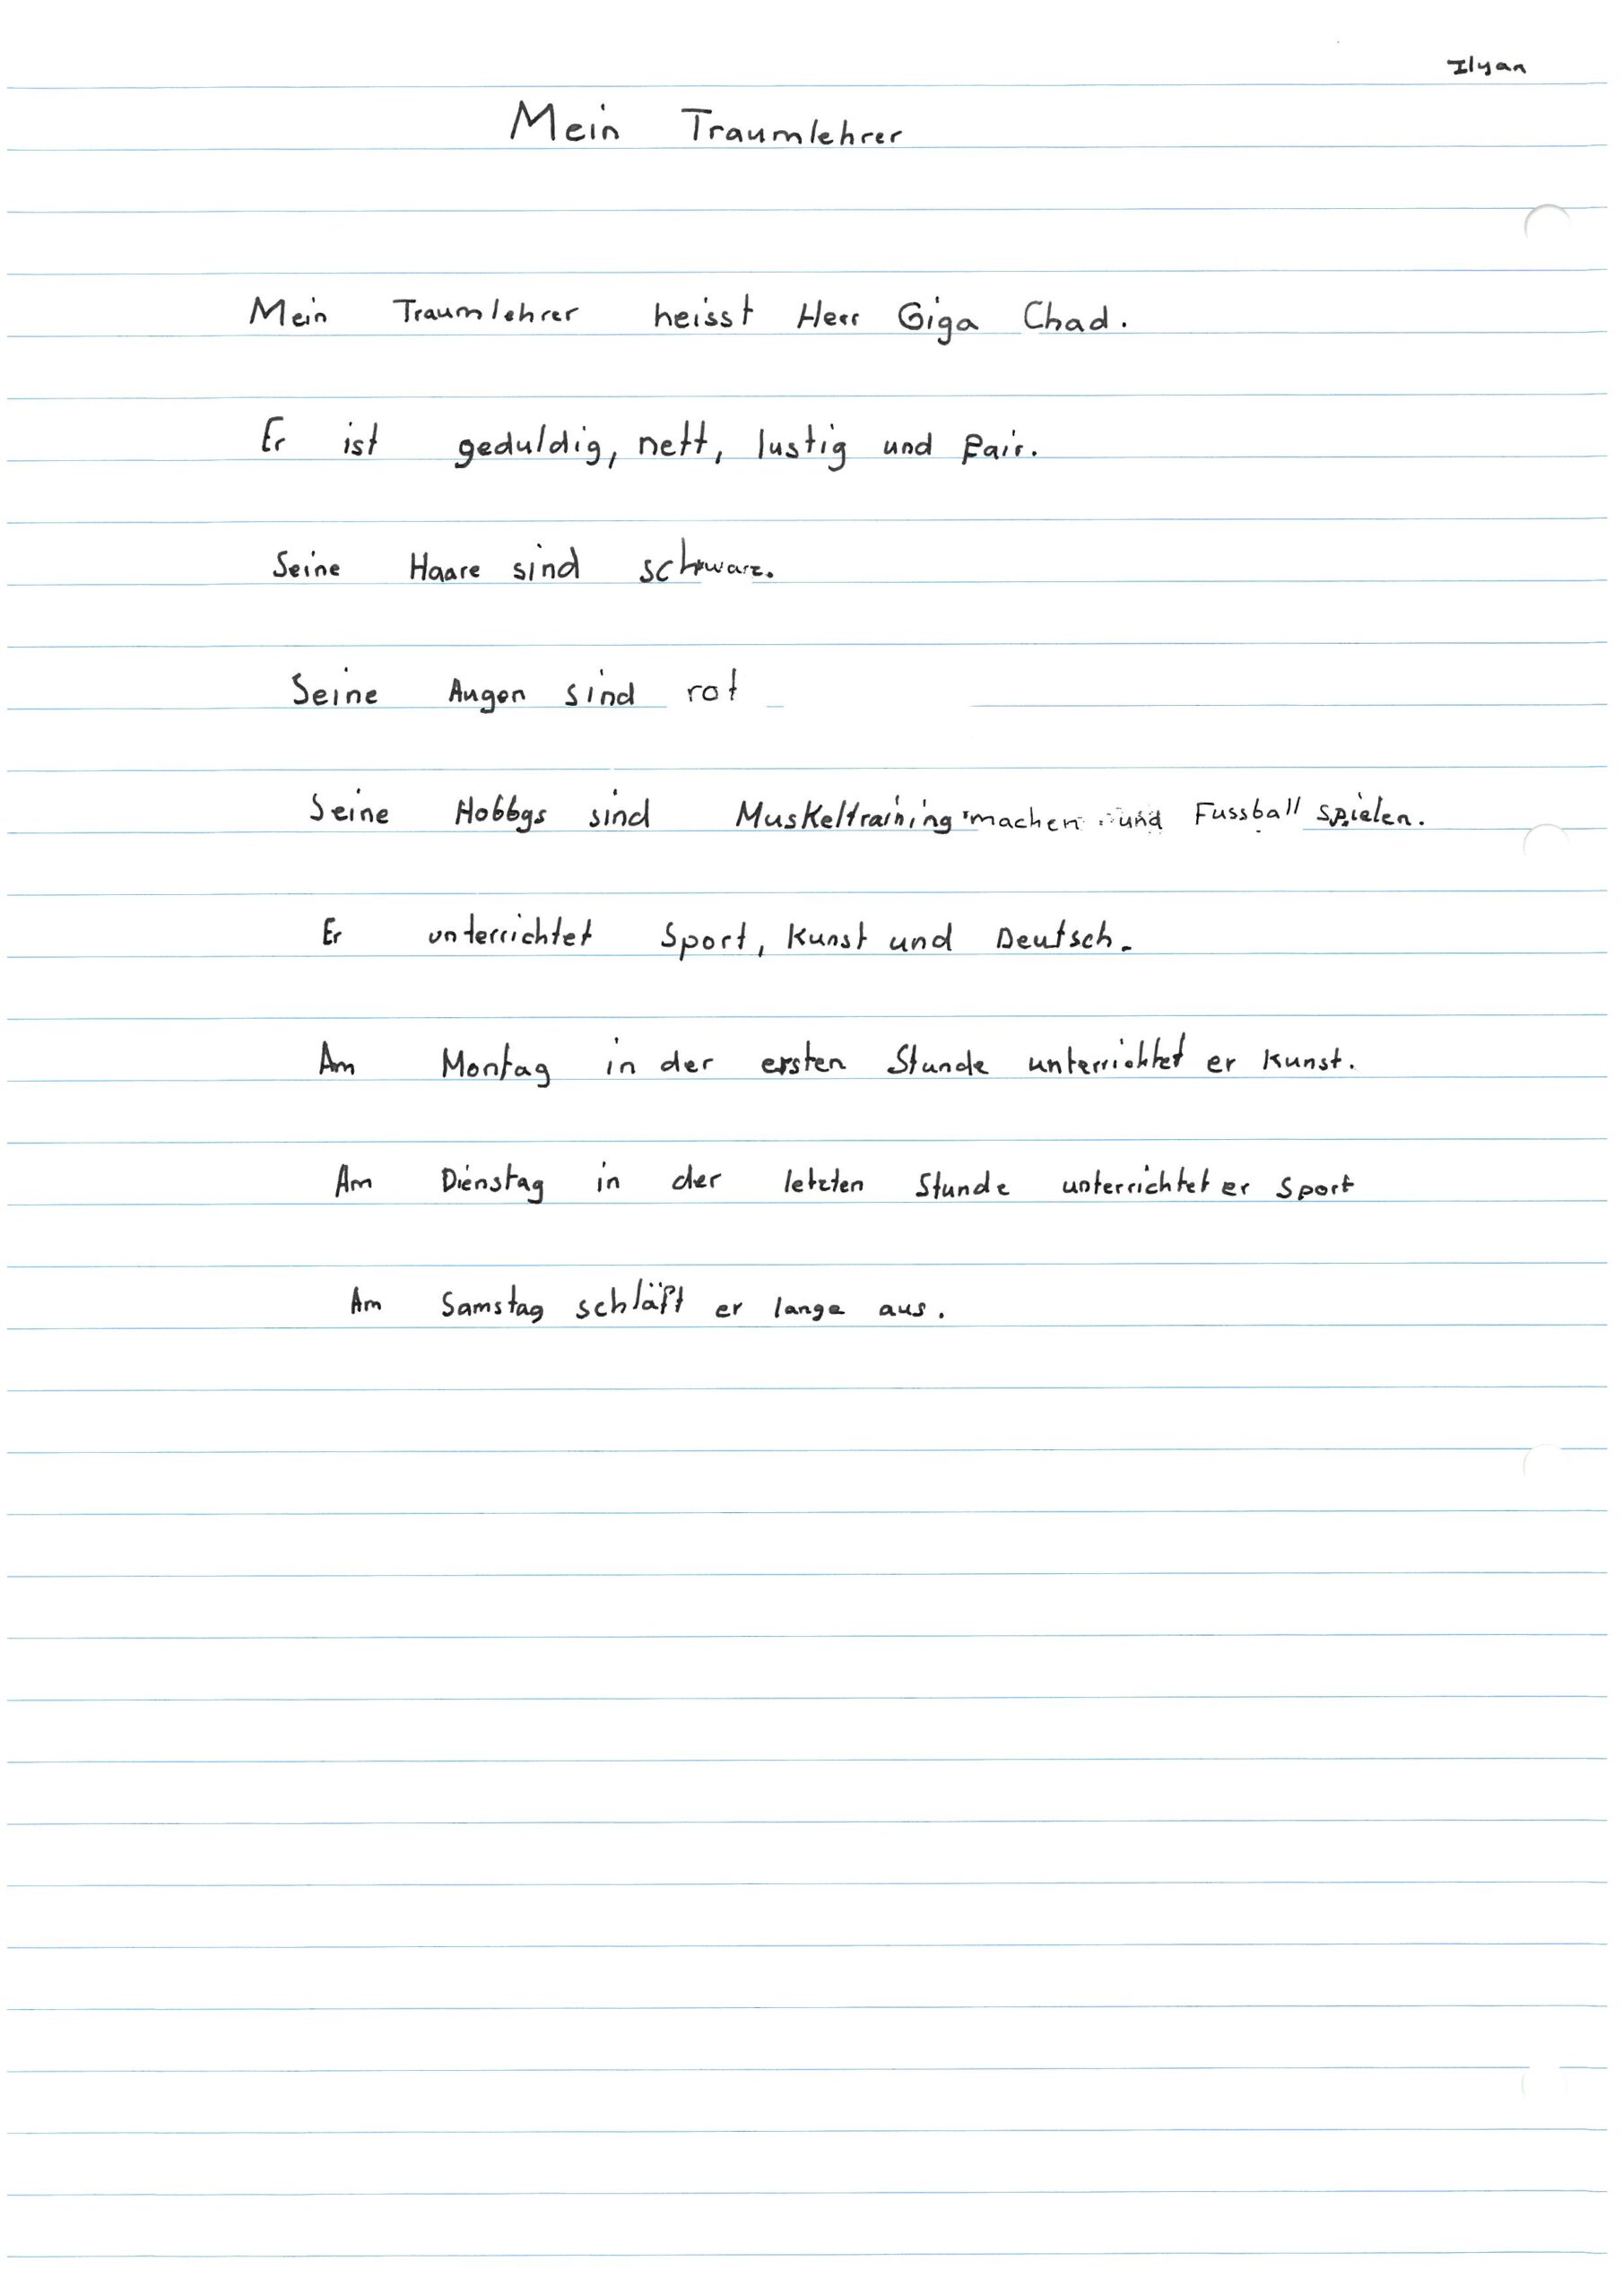 Ilyan
Mein Traumlehrer
Mein Traumlehrer heisst Herr Giga Chad.
Er ist geduldig, nett, lustig und fair.
Seine Haare sind schwarz.
Seine Augen sind rot
Seine Hobbys sind Muskeltraining machen und Fussball spielen.
Er unterrichtet Sport, Kunst und Deutsch.
Am Montag in der ersten Stunde unterrichtet er Kunst.
Am Dienstag in der letzten Stunde unterrichtet er Sport
Am Samstag schläft er lange aus.